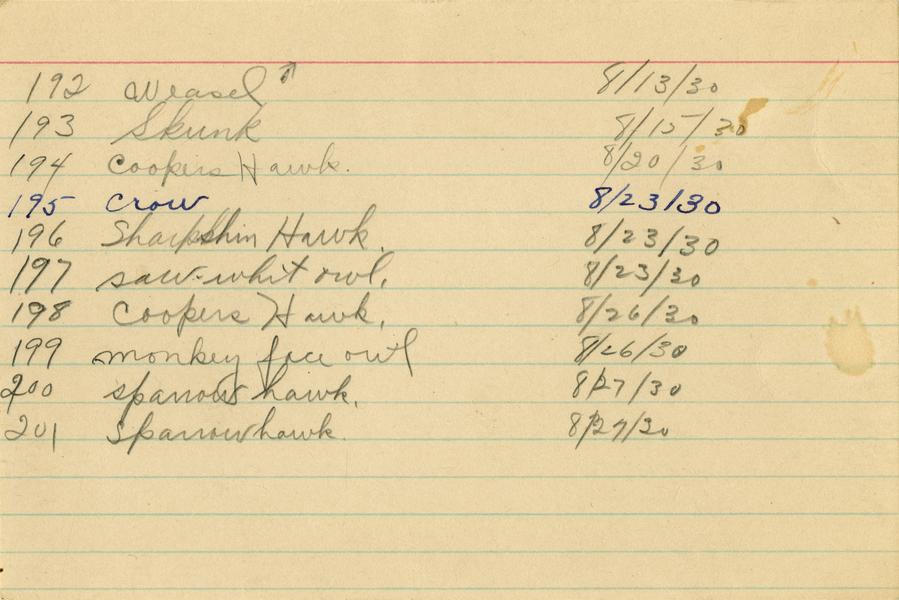 192 Weasel ↑ 8/13/30
193 Skunk 8/15/30
194 Coopers Hawk. 8/20/30
195 Crow 8/23/30
196 Sharpshin Hawk. 8/23/30
197 saw-whit owl. 8/23/30
198 Coopers Hawk. 8/26/30
199 monkey face owl 8/26/30
200 sparrow hawk. 8/27/30
201 Sparrowhawk. 8/27/30